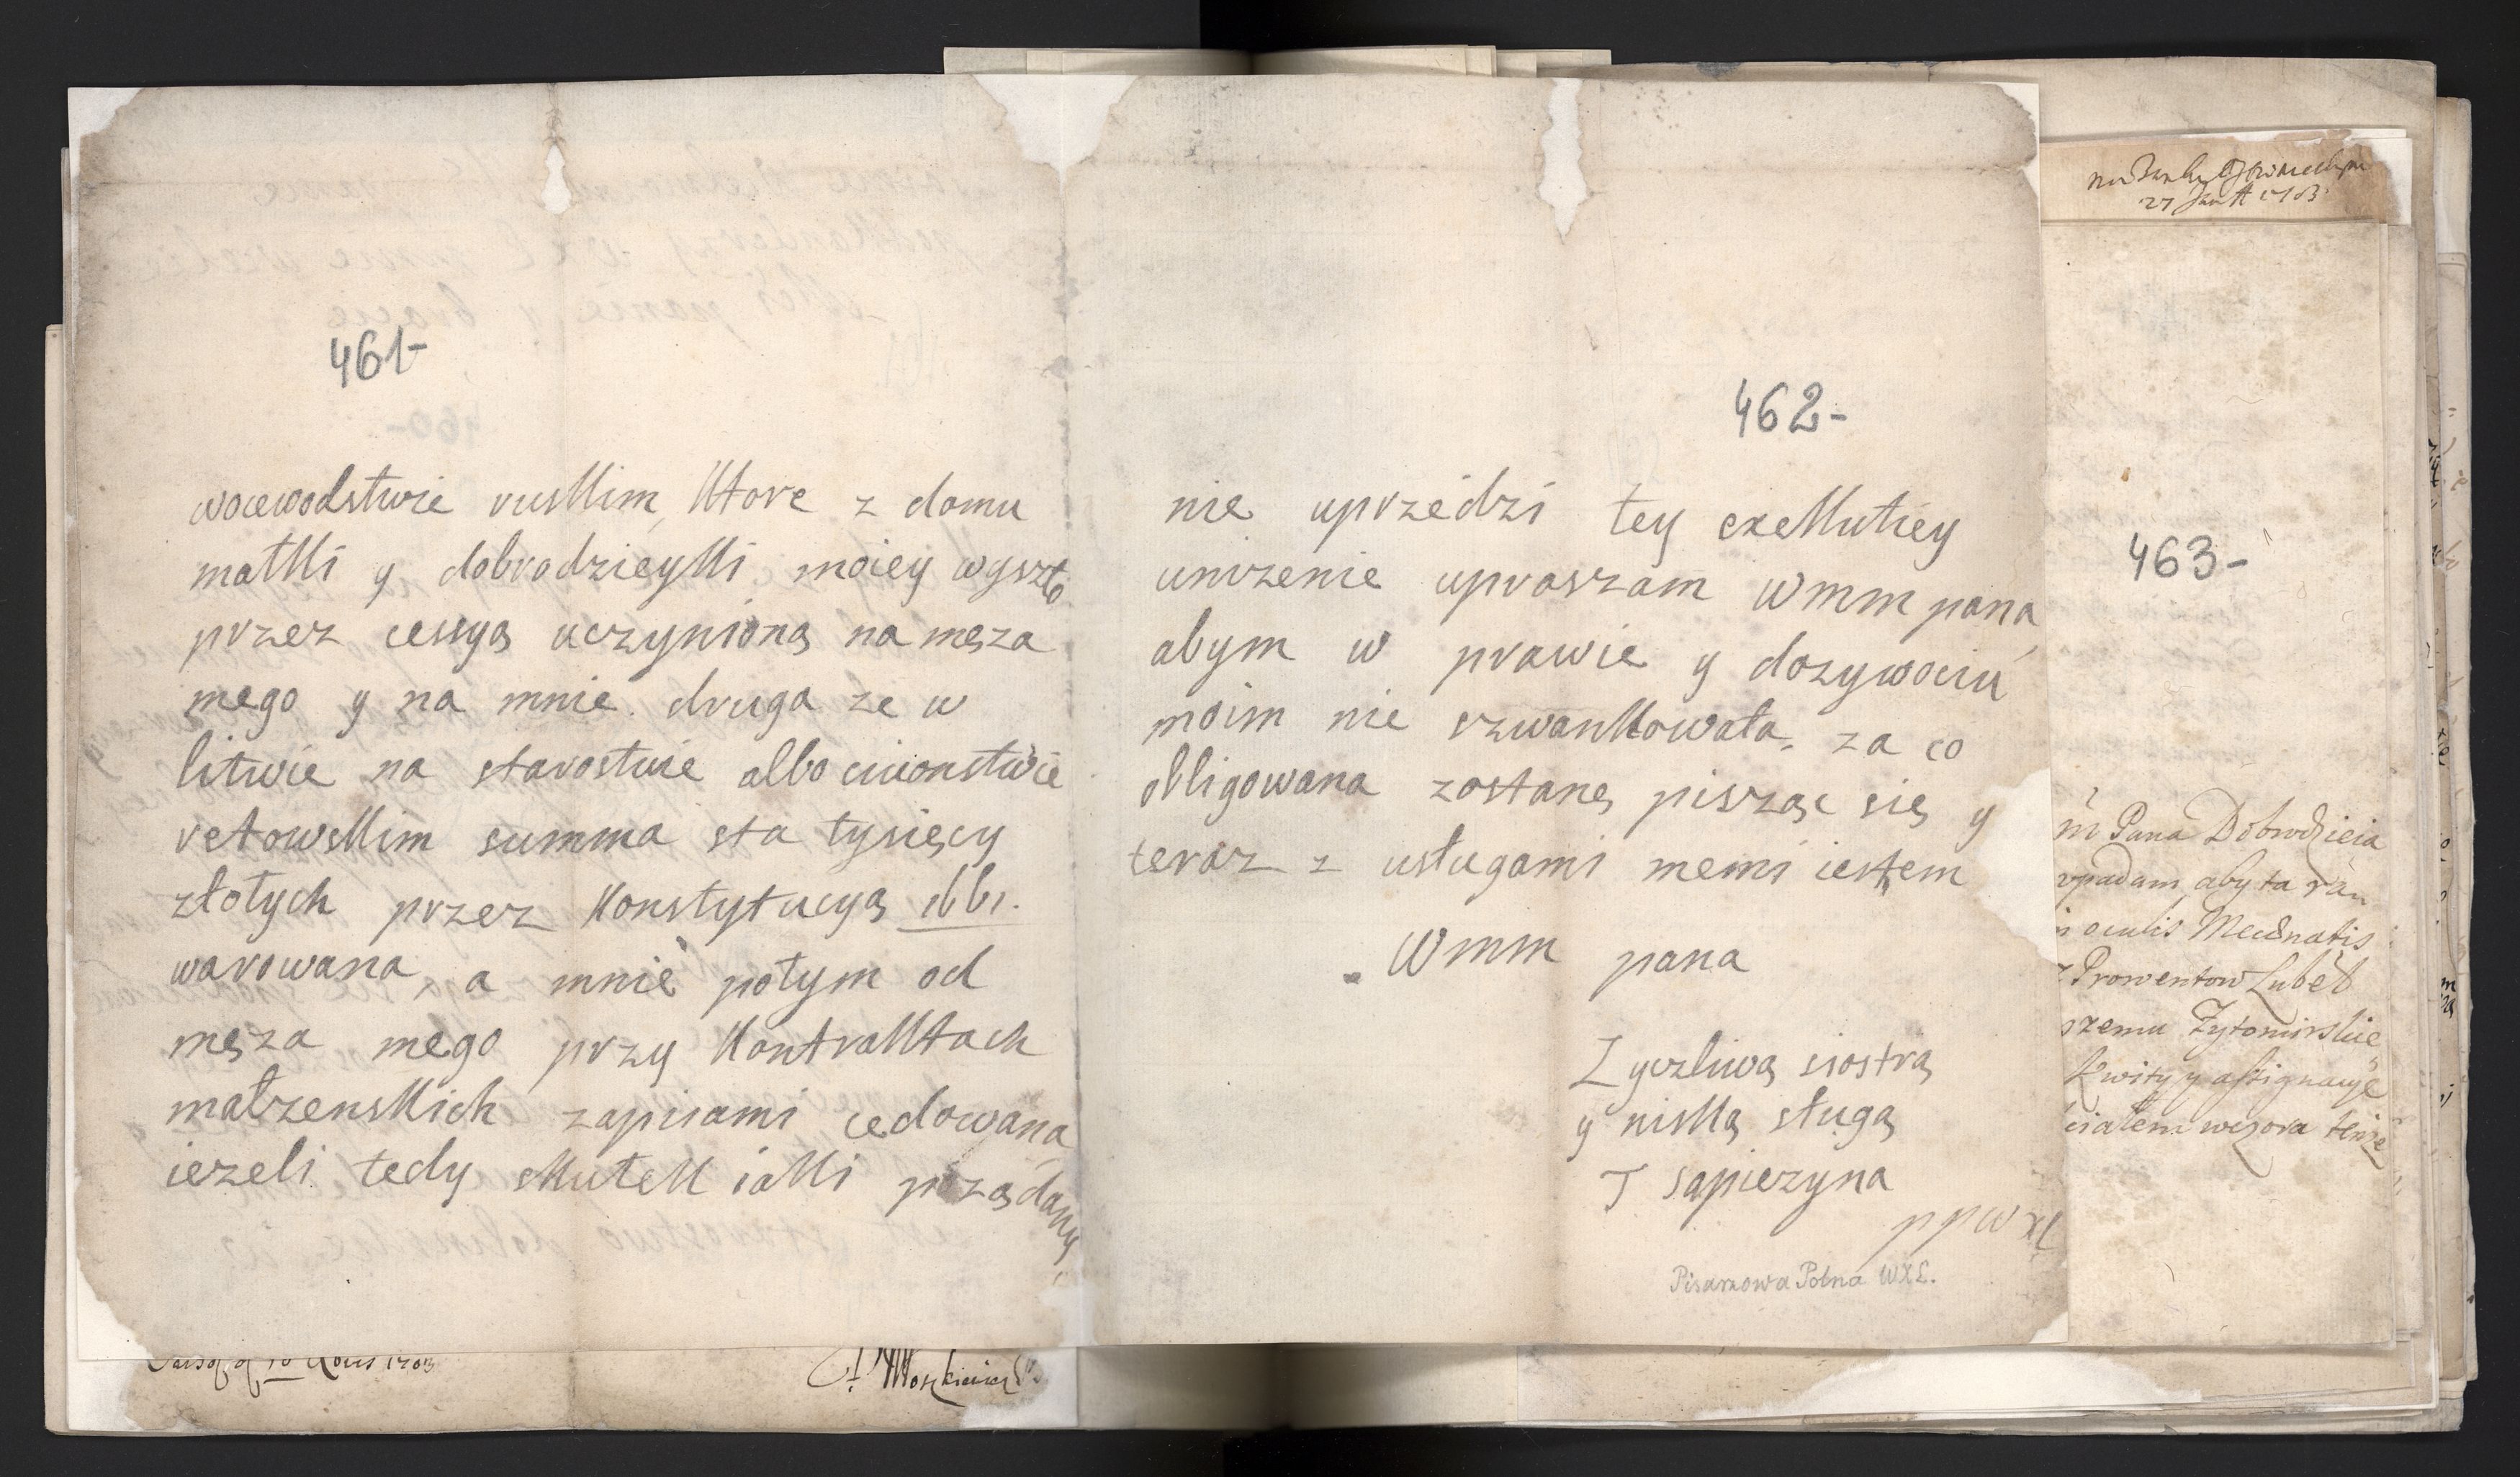 461-
wocewodstwie ruskim, ktore z domu
matki y dobrodzieyki moiey wyszło
przez cessyą uczynioną na męza
mego y na mnie. druga ze w
litwie na starostwie albo ciwonstwie
retowskim summa sta tysięcy
złotych przez konstytucyą
warowana, a mnie potym od
męza mego przy kontraktach
małzenskich zapisami cedowana
iezeli tedy skutek iaki poządany
462-
nie uprzedzi tey exekutiey
unizenie upraszam Wmm pana
abym w prawie y dozywociu
moim nie szwankowała, za co
obligowana zostanę pisząc się y
teraz z usługami memi iestem
Wmm pana
Zyczliwą siostrą
y niską sługą
T Sapiezyna
ppwxl
Pisarzowa Polna WXL.
27 1703
463-
m Pana Dobrodzieia
upadam, aby ta
oculis
Prowentow Lubel
szemu Zytomirskie
Kwity y assignacye